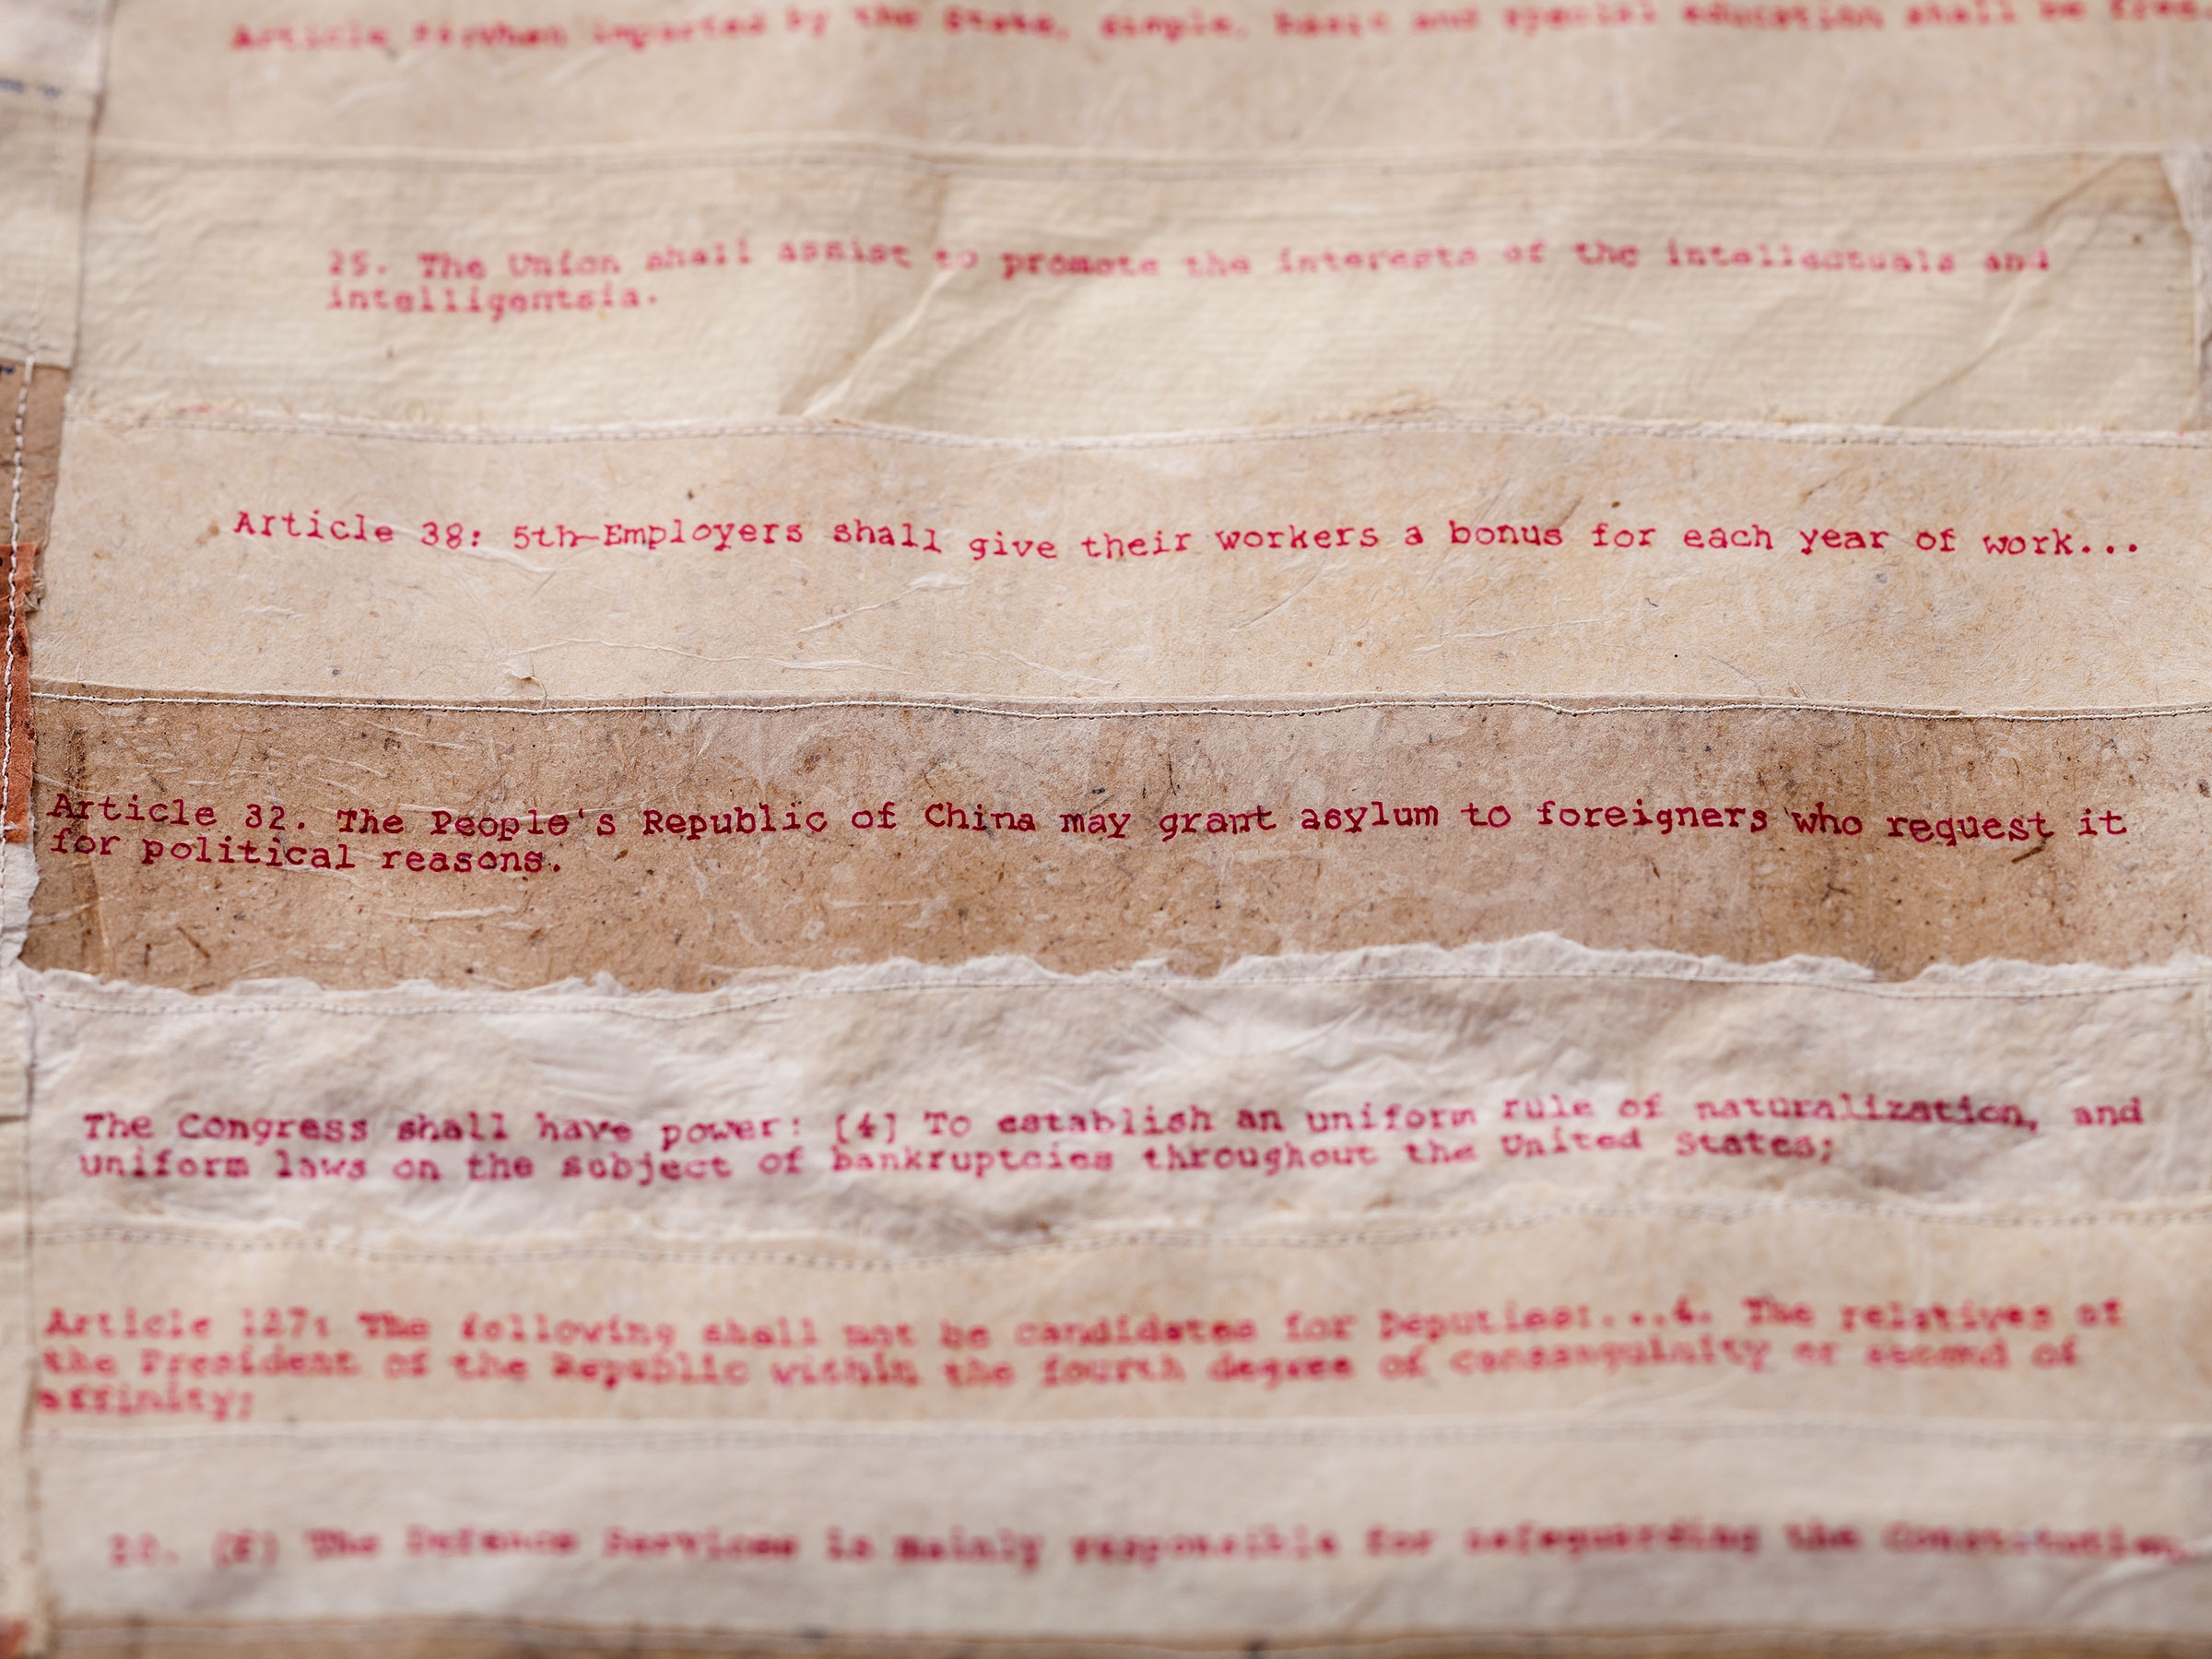 Article When imparted by the State, simple, basic and special education shall be free
25. The Union shall assist to promote the interests of the intellectuals and
intelligentsia.
Article 38: 5th-Employers shall give their workers a bonus for each year of work...
Article 32. The People's Republic of China may grant asylum to foreigners who request it
for political reasons.
The Congress shall have power: [4] To establish an uniform rule of naturalization, and
uniform laws on the subject of bankruptcies throughout the United States;
Article 127: The following shall not be candidates for Deputies:... The relatives of
the President of the Republic within the fourth degree of consanguinity or second of
affinity;
The Defence Services is mainly responsible for safeguarding the Constitution.